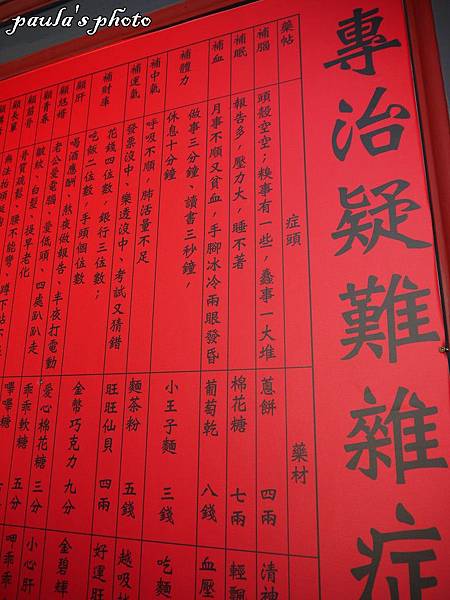 paula's photo
專治疑難雜症
藥帖
症頭
藥材
補腦
頭殼空空；糗事有一些，蠢事一大堆
蔥餅 四兩
清神
補眠
報告多，壓力大，睡不著
棉花糖 七兩
輕飄
補血
月事不順又貧血，手腳冰冷兩眼發昏
葡萄乾 八錢
血壓
補體力
做事三分鐘、讀書三秒鐘，
休息十分鐘
小王子麵 三錢
吃麵
補中氣
呼吸不順，肺活量不足
麵茶粉 五錢
越吸
補運氣
發票沒中、樂透沒中、考試又猜錯
旺旺仙貝 四兩
好運旺
補財庫
花錢四位數，銀行三位數；
吃飯二位數，手頭個位數
金幣巧克力 九分
金碧輝
顧肝
喝酒應酬、熬夜做報告、半夜打電動
愛心棉花糖 三分
小心肝
顧結婚
老公愛電腦、愛低頭、四處趴趴走
乖乖軟糖 五分
呷乖
顧青春
皺紋、白髮、提早老化
嗶嗶糖
顧筋骨
骨質疏鬆、腰不能彎、蹲下站不
顧長輩
無法抬頭挺胸